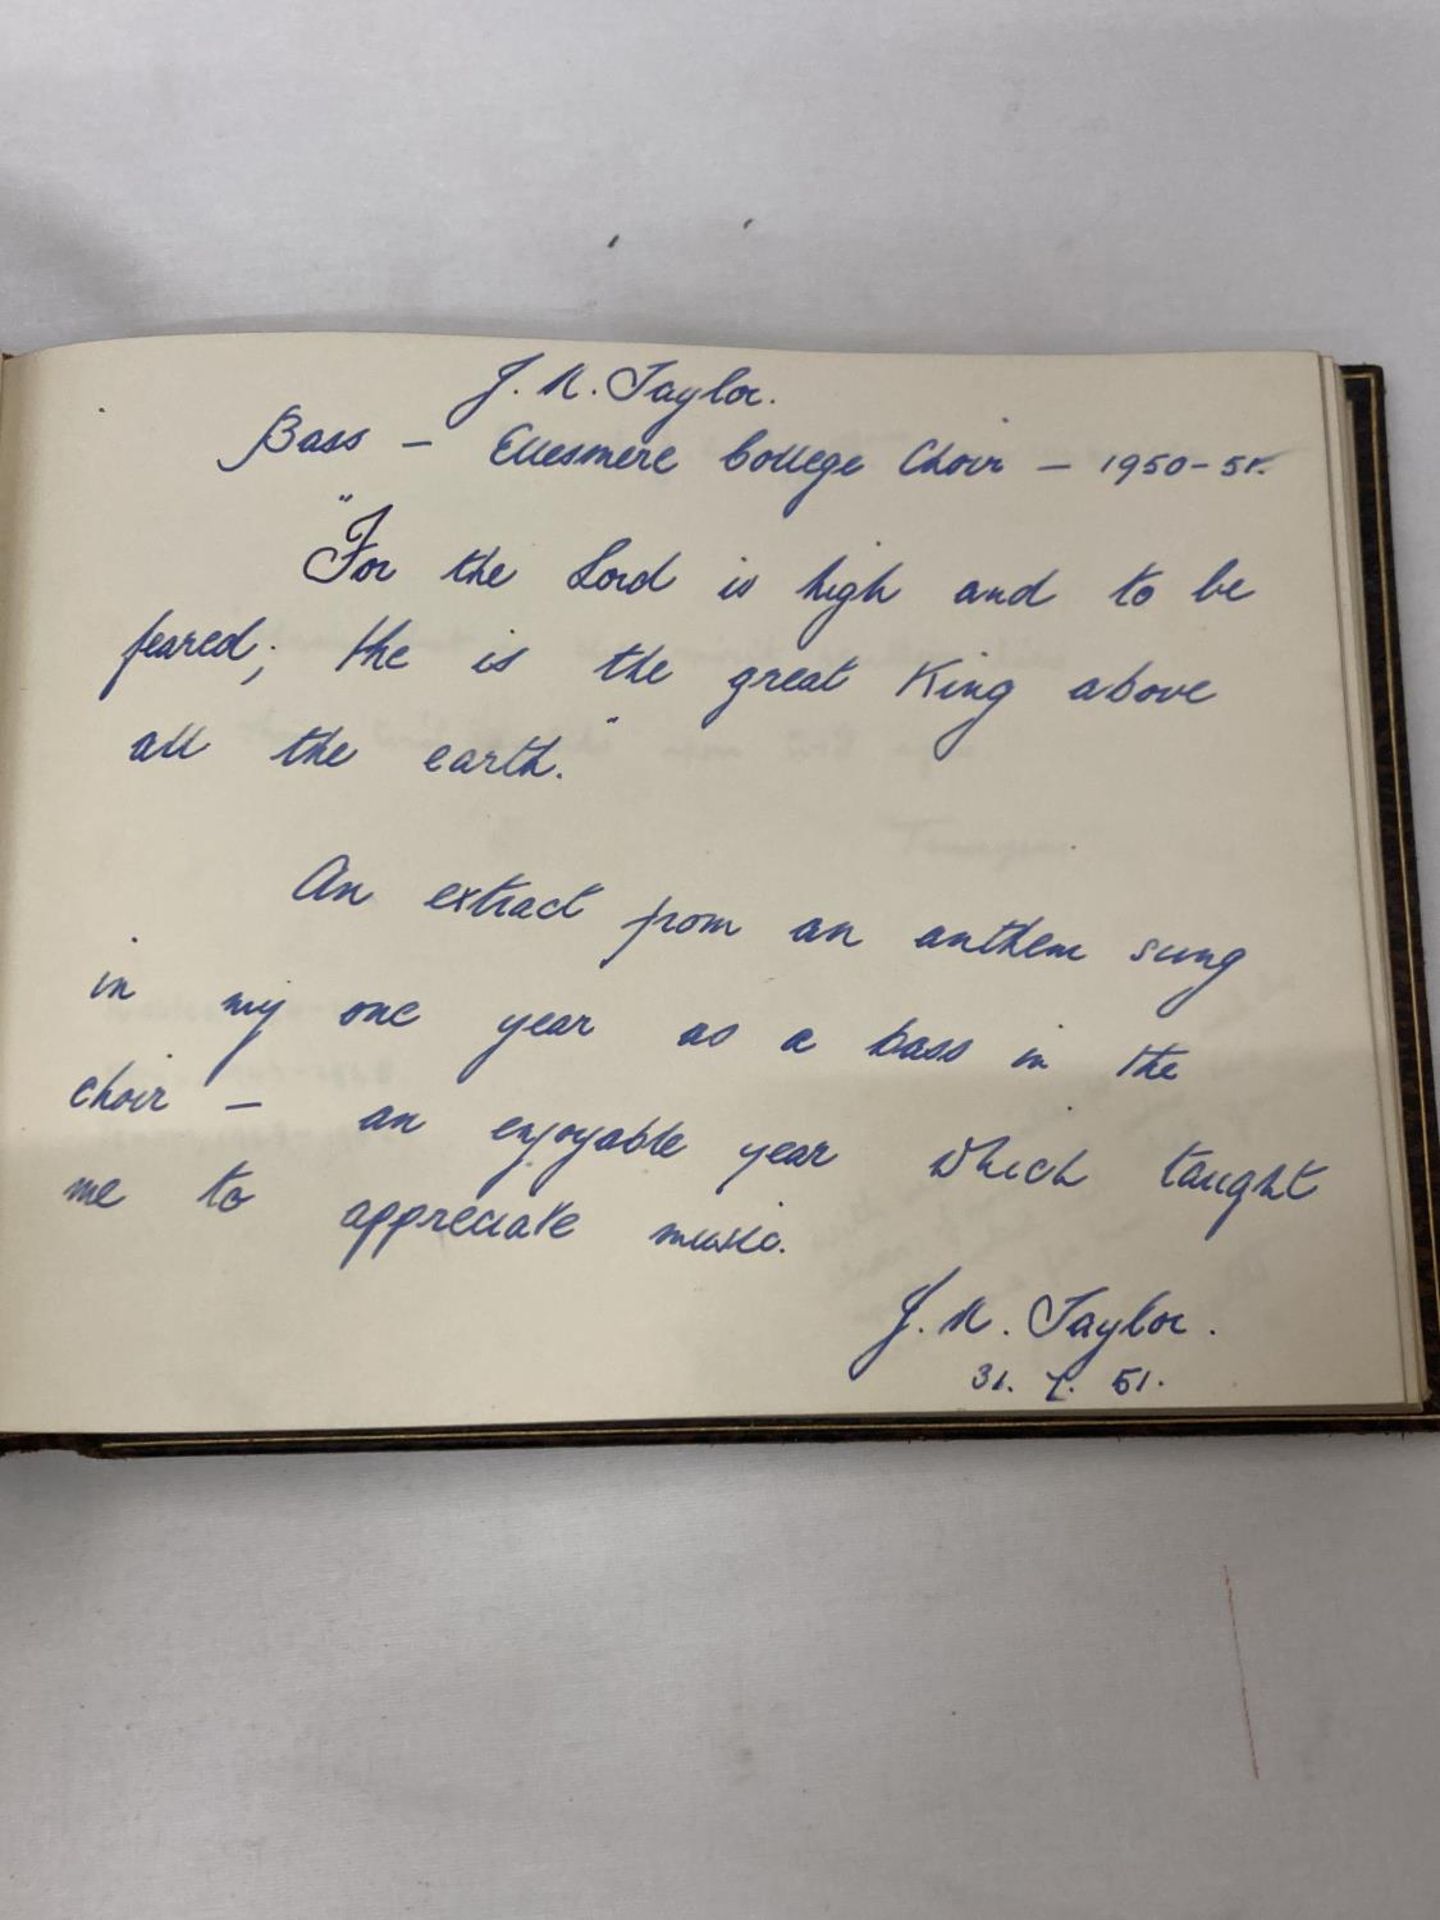 J. R. Taylor.
Bass – Ellesmere College Choir – 1950-51.
"For the Lord is high and to be
feared; the is the great King above
all the earth."
An extract from an anthem sung
in my one year as a bass in the
choir – an enjoyable year which taught
me to appreciate music.
J. R. Taylor.
31. 7. 51.